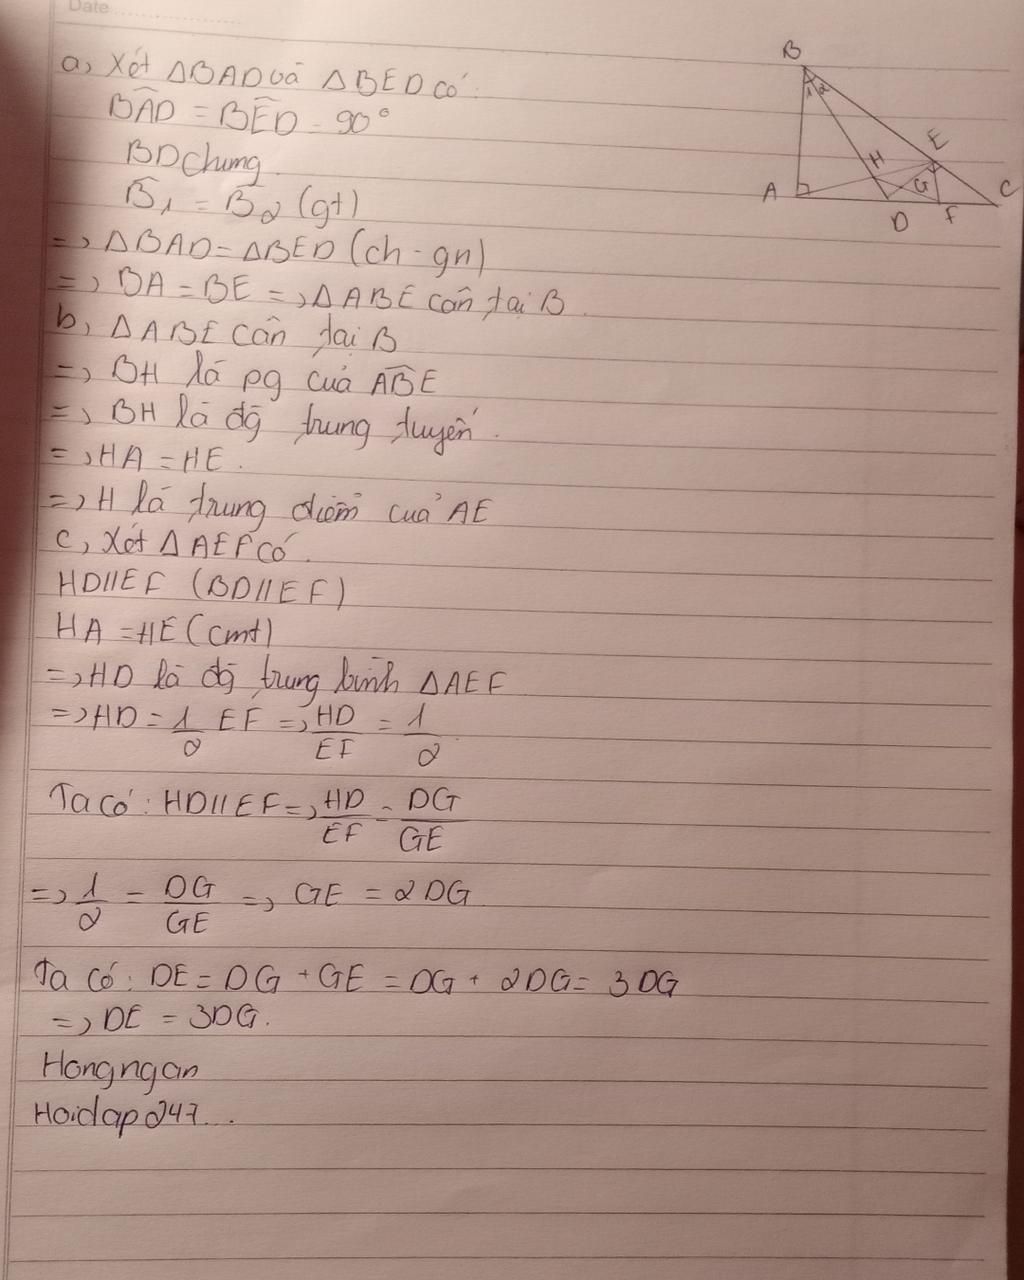 Date
a, Xét ΔBAD và ΔBED có:
BÂD = BÊD = 90°
BD chung
B̂₁ = B̂₂ (gt)
=> ΔBAD = ΔBED (ch - gn)
=> BA = BE => ΔABE cân tại B.
b, ΔABE cân tại B
=> BH là pg của AB̂E
=> BH là đg trung tuyến.
=> HA = HE.
=> H là trung điểm của AE
c, Xét ΔAEF có.
HD//EF (BD//EF)
HA = HE (cmt)
=> HD là đg trung bình ΔAEF
=> HD = 1/2 EF => HD/EF = 1/2
Ta có: HD//EF => HD/EF = DG/GE
=> 1/2 = DG/GE => GE = 2DG
Ta có: DE = DG + GE = DG + 2DG = 3DG
=> DE = 3DG.
Hongngan
Hoidap247...
B
1 2
E
H
A
G
C
D
F